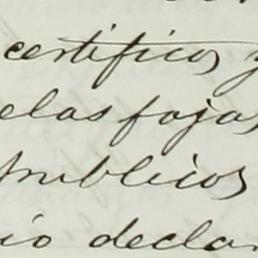 certifico, y
elas fojas
publicos
io declar